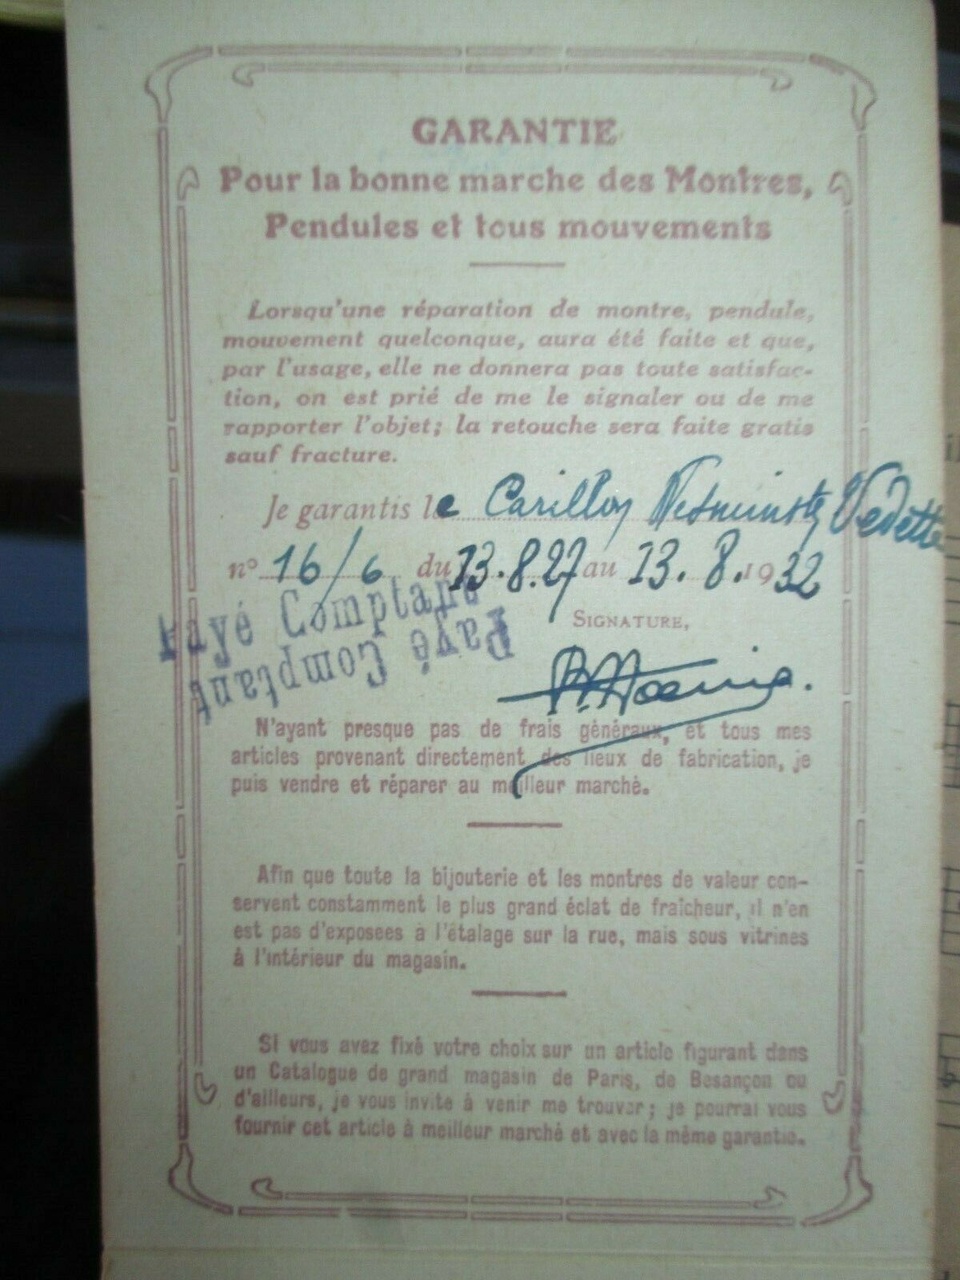 GARANTIE
Pour la bonne marche des Montres,
Pendules et tous mouvements
Lorsqu'une réparation de montre, pendule,
mouvement quelconque, aura été faite et que,
par l'usage, elle ne donnera pas toute satisfac-
tion, on est prié de me le signaler ou de me
rapporter l'objet; la retouche sera faite gratis
sauf fracture.
Je garantis le Carillon Vedette
n° 16/6 du 13.8.27 au 13.8.1932
Payé Comptant
Payé Comptant
SIGNATURE,
N'ayant presque pas de frais généraux, et tous mes
articles provenant directement des lieux de fabrication, je
puis vendre et réparer au meilleur marché.
Afin que toute la bijouterie et les montres de valeur con-
servent constamment le plus grand éclat de fraîcheur, il n'en
est pas d'exposees à l'étalage sur la rue, mais sous vitrines
à l'intérieur du magasin.
Si vous avez fixé votre choix sur un article figurant dans
un Catalogue de grand magasin de Paris, de Besançon ou
d'ailleurs, je vous invite à venir me trouver; je pourrai vous
fournir cet article à meilleur marché et avec la même garantie.